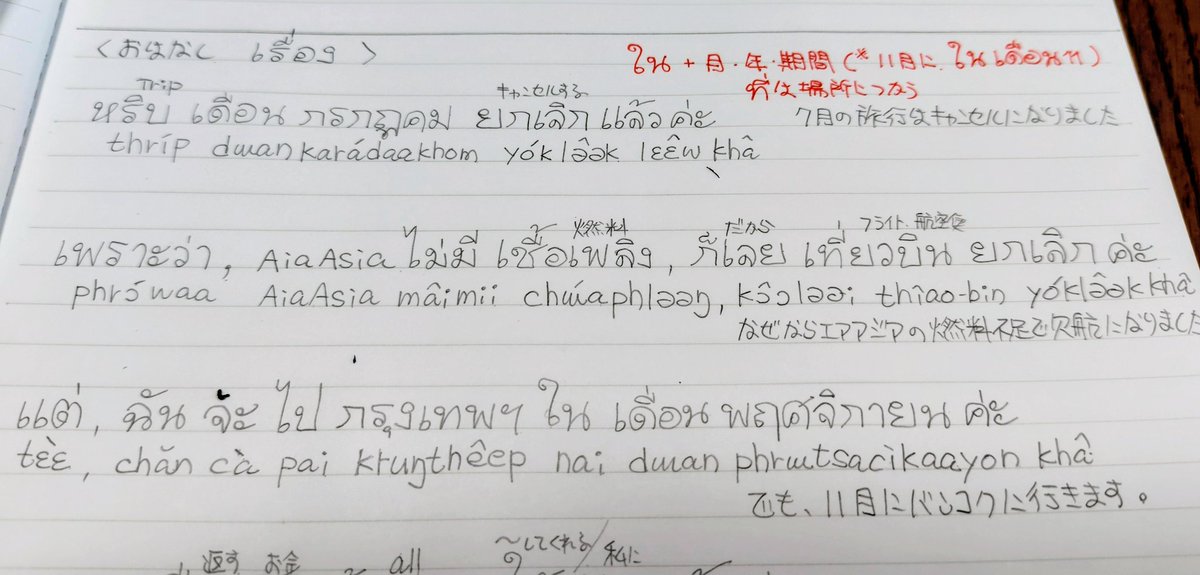 〈おはなし เรื่อง〉
ใน + 月・年・期間 (* 11月に ใน เดือน 11)
ที่は場所につなう
Trip キャンセルする
หริบ เดือน กรกฎาคม ยกเลิก แล้ว ค่ะ 7月の旅行はキャンセルになりました
thríp dɯan karádaakhom yók lə̂ək lɛ́ɛw khâ
燃料 だから フライト・航空便
เพราะว่า, AiaAsia ไม่มี เชื้อเพลิง, ก็เลย เที่ยวบิน ยกเลิก ค่ะ
phrɔ́waa AiaAsia mâimii chɯ́aphləəŋ, kɔ̂ɔləəi thîao-bin yóklə̂əkkhâ
なぜならエアアジアの燃料不足で欠航になりました
แต่, ฉัน จ้ะ ไป กรุงเทพฯ ใน เดือน พฤศจิกายน ค่ะ
tɛ̀ɛ, chăn cà pai kruŋthêep nai dɯan phrɯtsacìkaayon khâ
でも、11月にバンコクに行きます。
返す お金 all 〜してくれる/私に